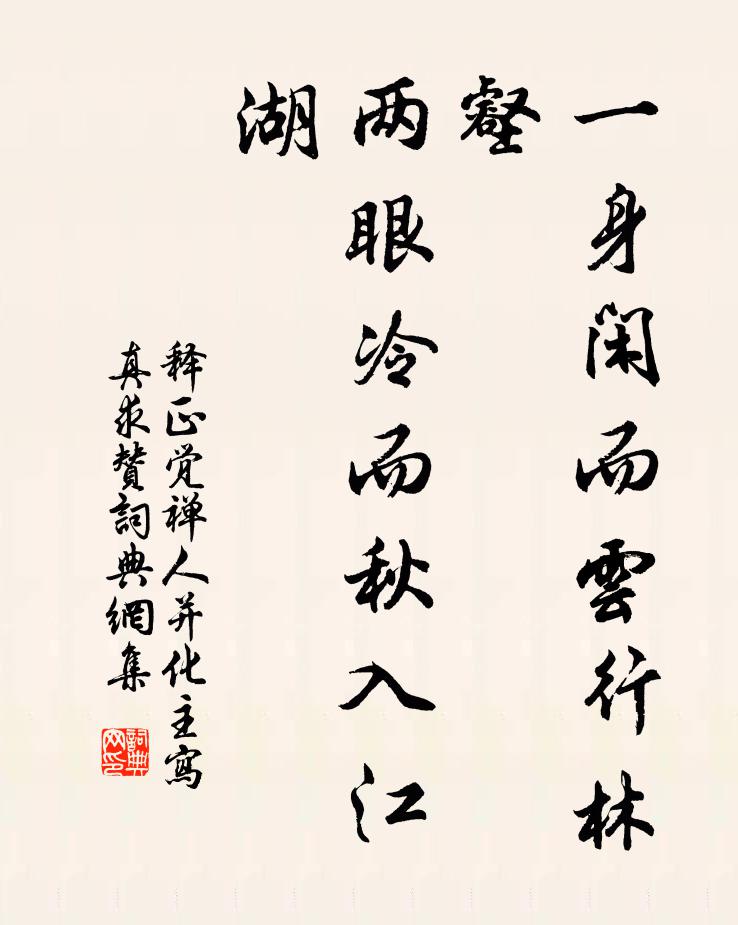 一身闲而雲行林
壑
两眼冷而秋入江
湖
释正觉禅人并化主寫
真求赞詞典網集
詞典
网印